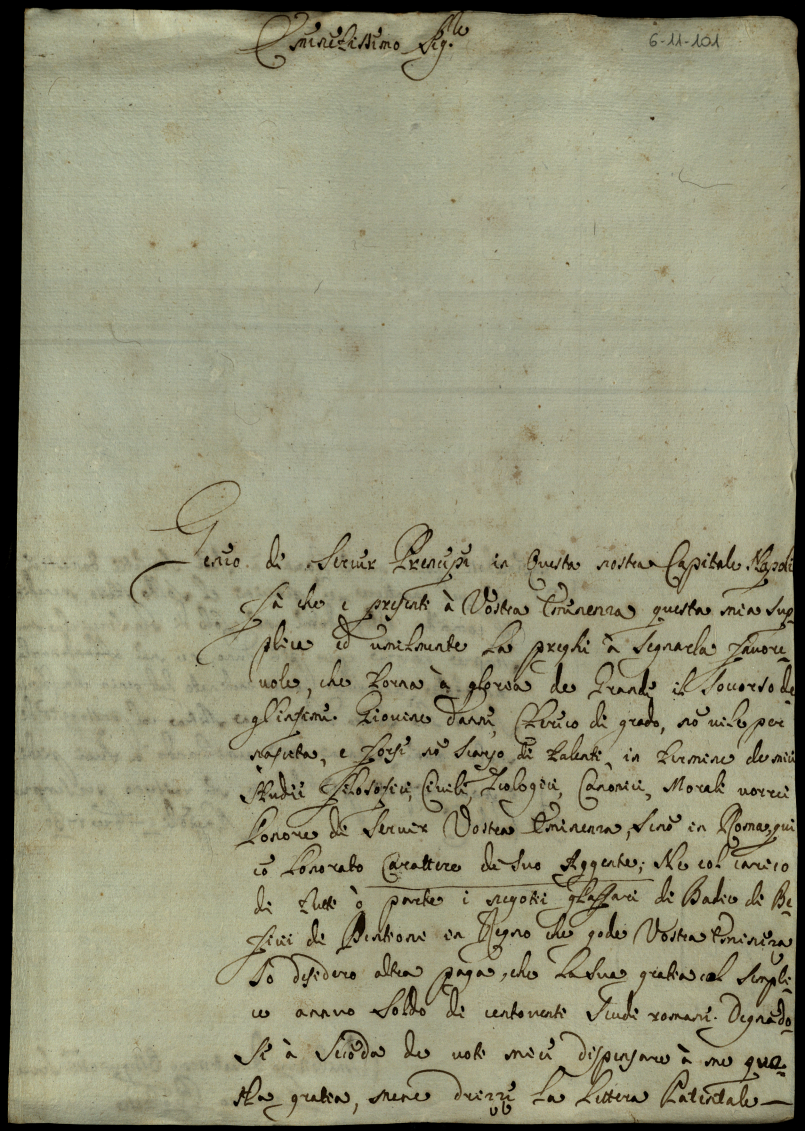 Eminentissimo Sig.re
6-11-101
Genio di Servir Prencipi in Questa nostra Capitale Napoli
fà che e presenti à Vostra Eminenza questa mia sup-
plica ed umilmente la preghi à segnarla favore-
vole, che torna à gloria de Grandi il soccorso de-
gl'infimi. Giovine d'anni, Chierico di grado, nō vile per
nascita, e forsi nō scarso di talenti, in termine de miei
studii filosofici, Civili, Teologici, Canonici, Morali vorrei
l'onore di servir Vostra Eminenza, senō in Roma, qui
cō l'onorato Carattere di suo Aggente; Ne col carico
di tutti ò parte i negotii gl'affari di Badie di Be-
ficii di Pentioni in Regno che gode Vostra Eminēza
Io desidero altra paga, che la sua gratia col simpli-
ce annuo soldo di centoventi scudi romani. Degnādo-
si à secōda de voti miei dispensare à me que-
sta gratia, mene drizzi la lettera Patentale